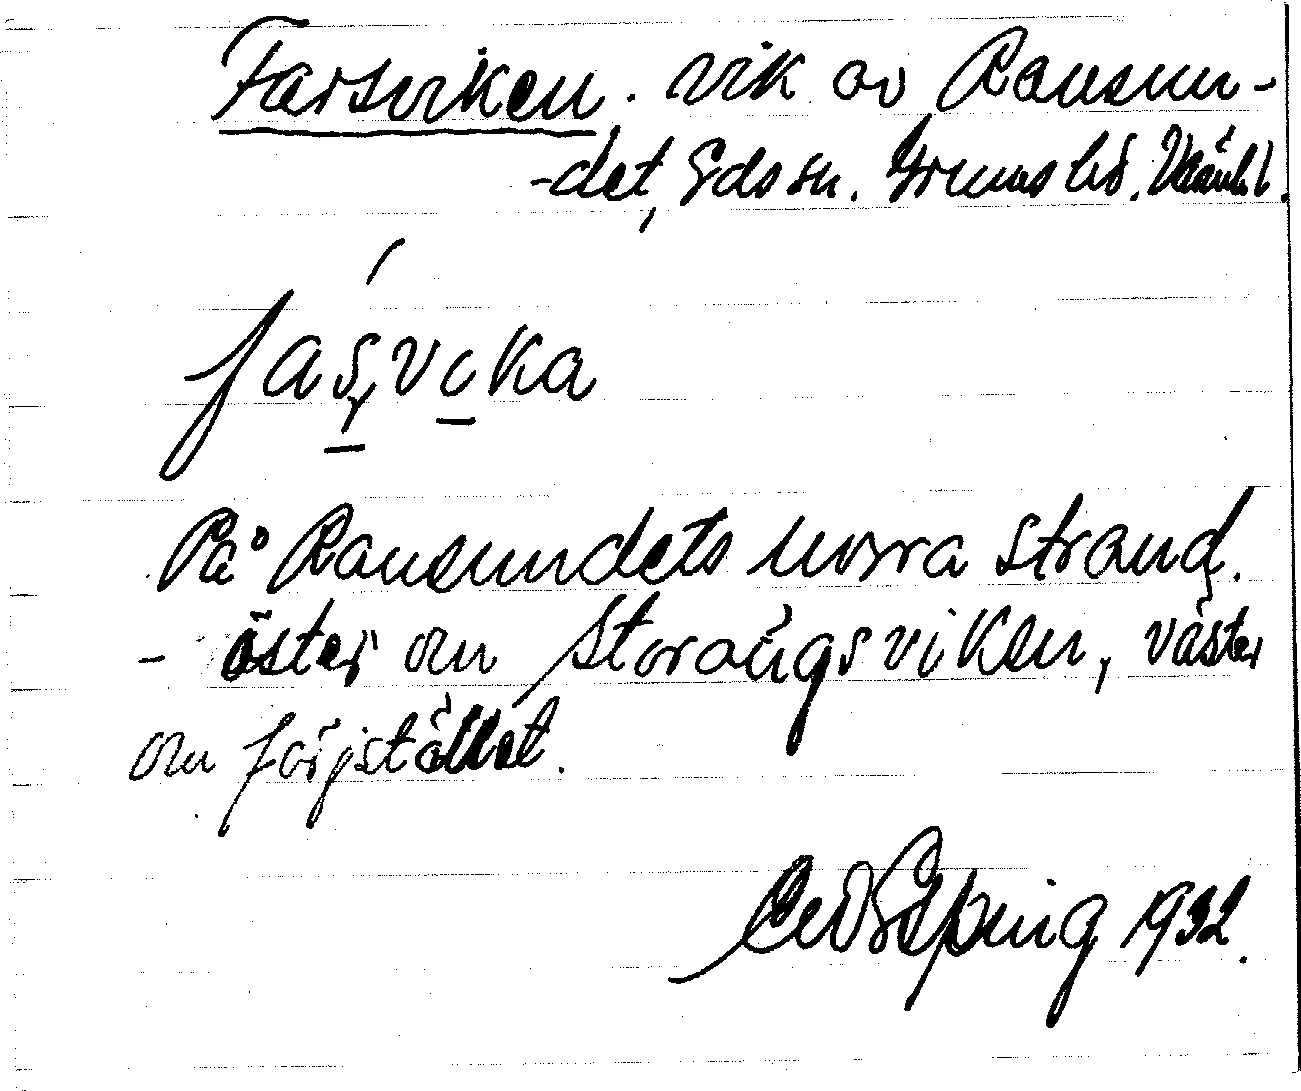 Farsviken. vik av Ransun-
-det, Eds sn. Grums hd. Värml.
fa ş v i ka
På Ransundets norra strand.
- öster om Storängsviken, väster
om färjstället.
1932.